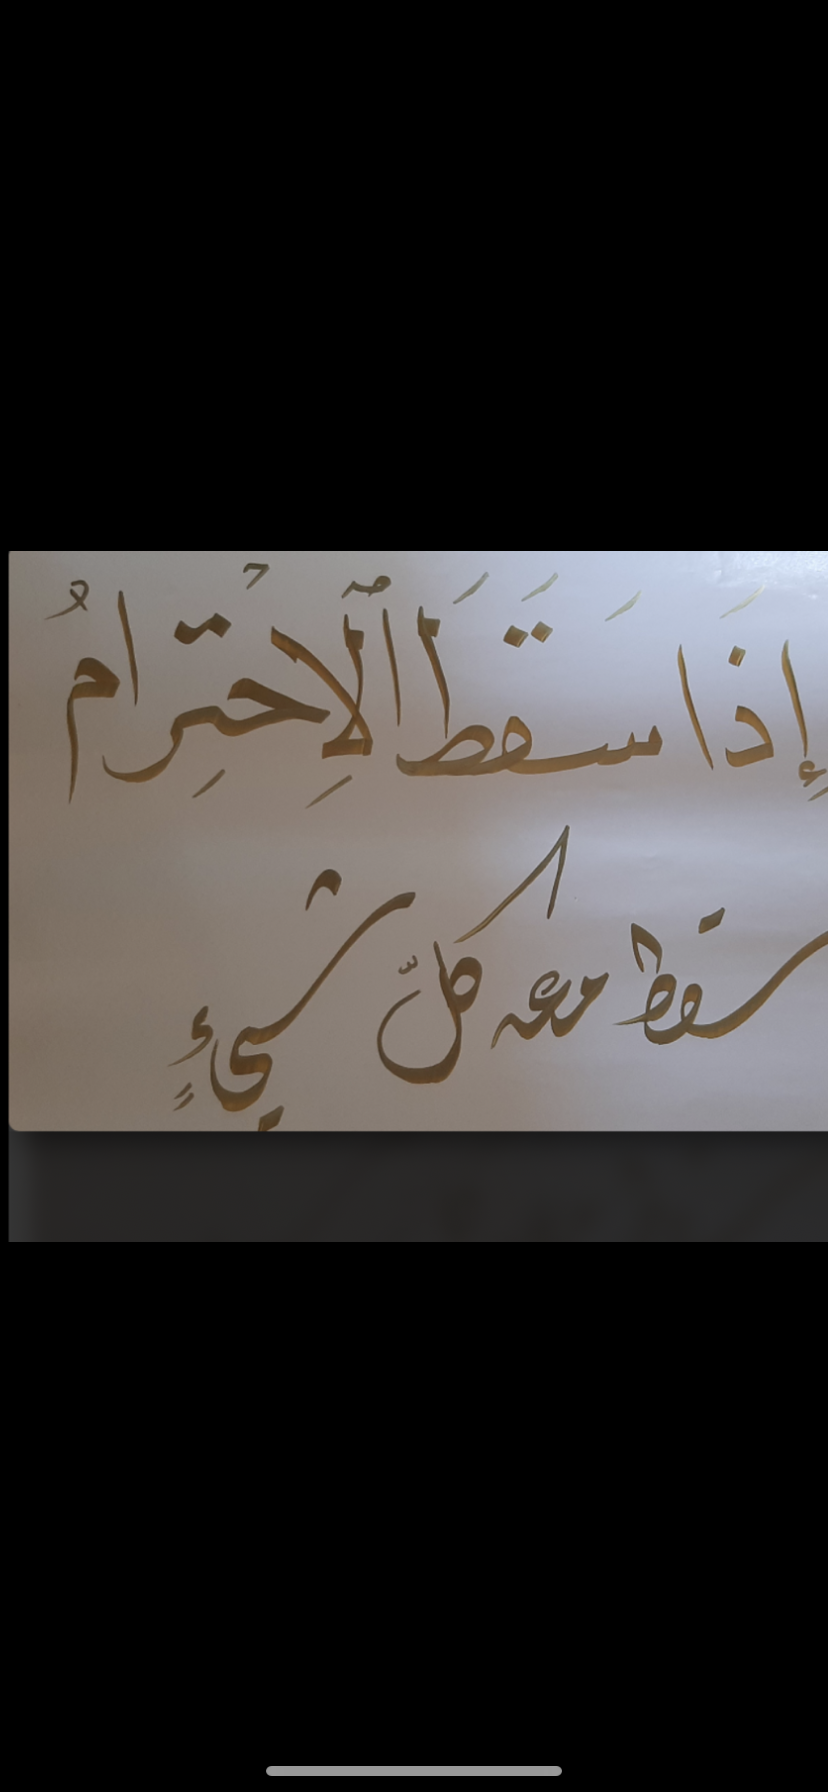 إِذَا سَقَطَ ٱلِاحْتِرامُ
سقط معه كلّ شيءٍ